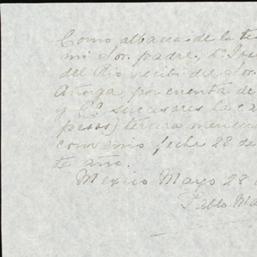 Como albacea de la te
mi Sor. padre, D. Ire
del Rio recibi del Sor.
Añorga por cuenta de
y Ca. sucesores la ca
pesos) tercera men
convenio fecha 28 de
te año.
Mexico Mayo 28
Pablo Ma